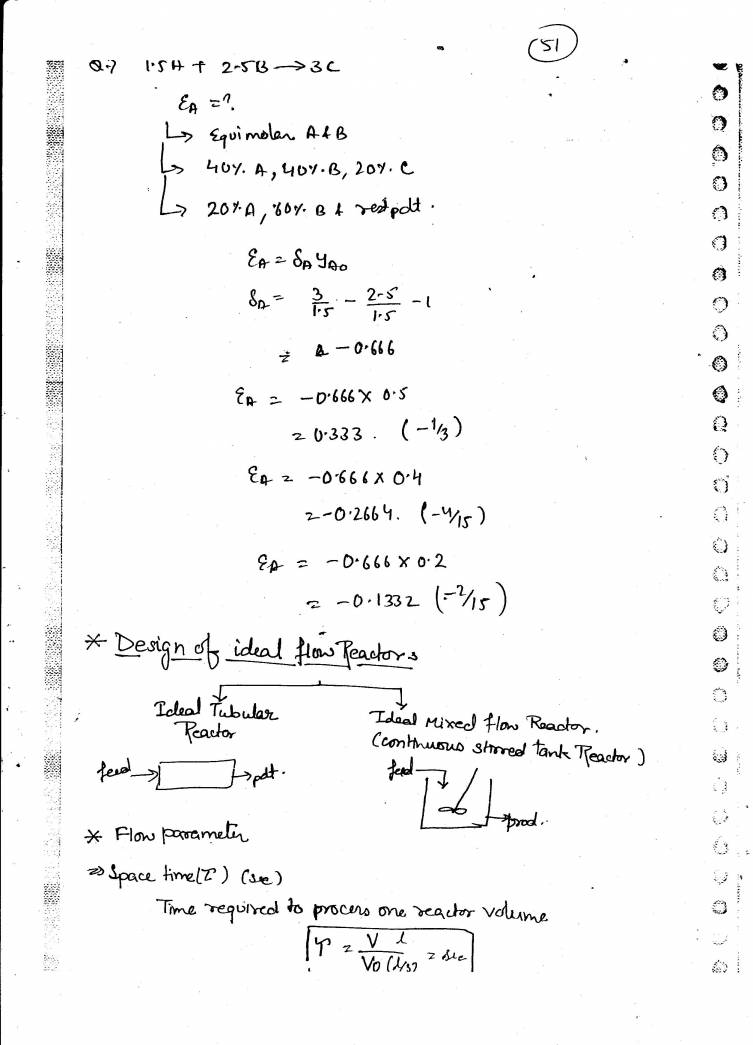 51
Q.7 1.5A + 2.5B → 3C
ε_A = ?
↳ Equimolar A & B
↳ 40% A, 40% B, 20% C
↳ 20% A, 60% B & rest pdt.
ε_A = δ_A y_A0
δ_A = 3/1.5 - 2.5/1.5 - 1
= -0.666
ε_A = -0.666 × 0.5
= 0.333. (-1/3)
ε_A = -0.666 × 0.4
= -0.2664. (-4/15)
ε_A = -0.666 × 0.2
= -0.1332 (-2/15)
* Design of ideal flow Reactors
Ideal Tubular
Reactor
feed → → pdt.
Ideal Mixed flow Reactor.
(continuous stirred tank Reactor)
feed
→ prod.
* Flow parameter
⇒ Space time (τ) (sec)
Time required to process one reactor volume
τ = V l / V0 (l/s) = sec